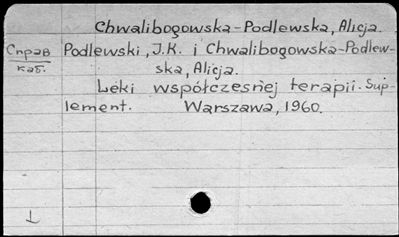 Chwalibogowska-Podlewska, Alicja.
Справ
каб.
Podlewski, J.K. i Chwalibogowska-Podlew-
ska, Alicja.
Leki współczesnej terapii. Sup-
lement. Warszawa, 1960.